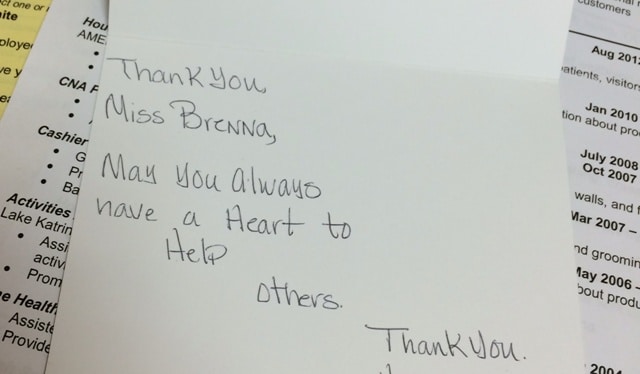 Thank You,
Miss Brenna,
May you Always
have a Heart to
Help
others.
Thank You.
Hou
AME
CNA
Cashier
G
Pr
Ba
Activities
Lake Katrin
Assi
activ
Prom
e Health
Assiste
Provide
customers
Aug 201
atients, visitors
Jan 2010
tion about pro
July 2008
Oct 2007
walls, and f
Mar 2007 –
nd groomin
May 2006 -
bout produ
2004